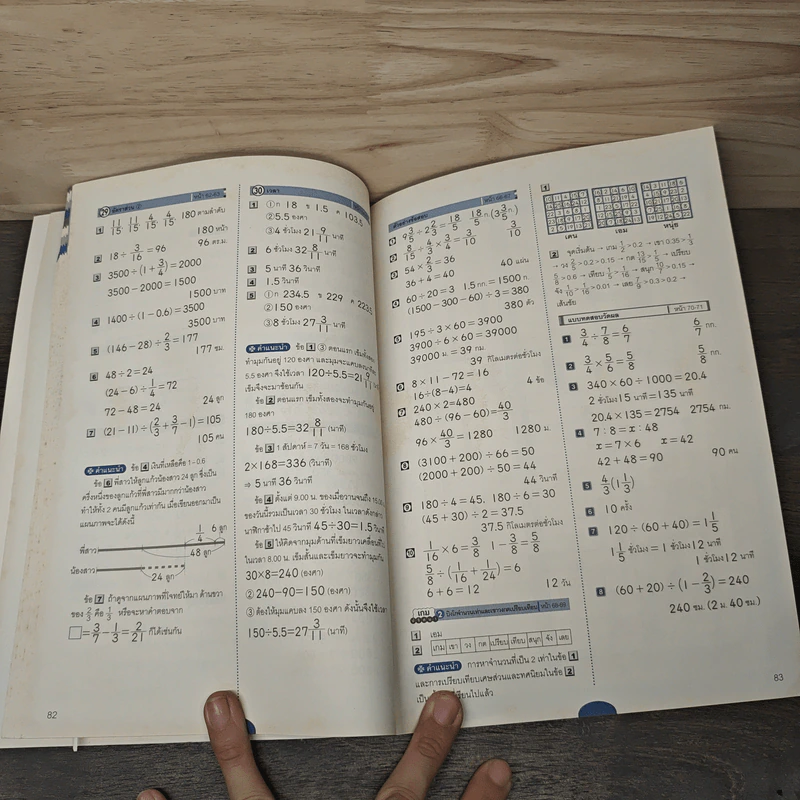 29 อัตราส่วน ② หน้า 62-63
1 11/15 11/15 4/15 4/15 180 ตามลำดับ
180 หน้า
2 18÷3/16=96 96 ตร.ม.
3 3500÷(1+3/4)=2000
3500-2000=1500
1500 บาท
4 1400÷(1-0.6)=3500
3500 บาท
5 (146-28)÷2/3=177
177 ซม.
6 48÷2=24
(24-6)÷1/4=72
72-48=24 24 ลูก
7 (21-11)÷(2/3+3/7-1)=105
105 คน
คำแนะนำ ข้อ 4 เงินที่เหลือคือ 1-0.6
ข้อ 6 พี่สาวให้ลูกแก้วน้องสาว 24 ลูก ซึ่งเป็น
ครึ่งหนึ่งของลูกแก้วที่พี่สาวมีมากกว่าน้องสาว
ทำให้ทั้ง 2 คนมีลูกแก้วเท่ากัน เมื่อเขียนออกมาเป็น
แผนภาพจะได้ดังนี้
1/4 6 ลูก
พี่สาว
48 ลูก
น้องสาว
24 ลูก
ข้อ 7 ถ้าดูจากแผนภาพที่โจทย์ให้มา ด้านขวา
ของ 2/3 คือ 1/3 หรือจะหาคำตอบจาก
□=3/7-1/3=2/21 ก็ได้เช่นกัน
82
30 เวลา
1 ①ก 18 ข 1.5 ค 103.5
②5.5 องศา
③4 ชั่วโมง 21 9/11 นาที
2 6 ชั่วโมง 32 8/11 นาที
3 5 นาที 36 วินาที
4 1.5 วินาที
5 ①ก 234.5 ข 229 ค 223.5
②150 องศา
③8 ชั่วโมง 27 3/11 นาที
คำแนะนำ ข้อ 1 ③ ตอนแรก เข็มทั้งสอง
ทำมุมกันอยู่ 120 องศา และมุมจะแคบลงนาทีละ
5.5 องศา จึงใช้เวลา 120÷5.5=21 9/11 นาที
เข็มจึงจะมาซ้อนกัน
ข้อ 2 ตอนแรก เข็มทั้งสองจะทำมุมกันอยู่
180 องศา
180÷5.5=32 8/11 (นาที)
ข้อ 3 1 สัปดาห์ = 7 วัน = 168 ชั่วโมง
2×168=336 (วินาที)
⇒ 5 นาที 36 วินาที
ข้อ 4 ตั้งแต่ 9.00 น. ของเมื่อวานจนถึง 15.00
ของวันนี้รวมเป็นเวลา 30 ชั่วโมง ในเวลาดังกล่าว
นาฬิกาช้าไป 45 วินาที 45÷30=1.5 วินาที
ข้อ 5 ให้คิดจากมุมด้านที่เข็มยาวเคลื่อนที่ไป
ในเวลา 8.00 น. เข็มสั้นและเข็มยาวจะทำมุมกัน
30×8=240 (องศา)
② 240-90=150 (องศา)
③ ต้องให้มุมแคบลง 150 องศา ดังนั้นจึงใช้เวลา
150÷5.5=27 3/11 (นาที)
ตัวอย่างข้อสอบ
1 9 3/5÷2 2/3=18/5 18/5 ก.(3 3/5 ก.)
2 8/15÷4/3×3/4=3/10 3/10
3 54×2/3=36
36+4=40 40 แผ่น
4 60÷20=3 1.5 กก.=1500 ก.
(1500-300-60)÷3=380
380 ตัว
5 195÷3×60=3900
3900÷6×60=39000
39000 ม.=39 กม.
39 กิโลเมตรต่อชั่วโมง
6 8×11-72=16
16÷(8-4)=4 4 ข้อ
7 240×2=480
480÷(96-60)=40/3
96×40/3=1280 1280 ม.
8 (3100+200)÷66=50
(2000+200)÷50=44
44 วินาที
9 180÷4=45, 180÷6=30
(45+30)÷2=37.5
37.5 กิโลเมตรต่อชั่วโมง
10 1/16×6=3/8 1-3/8=5/8
5/8÷(1/16+1/24)=6
6+6=12 12 วัน
เกม 2 หน้า 68-69
1 เอม
2 เกม เขา วง กต เปรียบ เทียบ สนุก จัง เลย
คำแนะนำ การหาจำนวนที่เป็น 2 เท่าในข้อ 1
และการเปรียบเทียบเศษส่วนและทศนิยมในข้อ 2
1
เดน เอม หนุ่ย
2 จุดเริ่มต้น → เกม 1/2>0.2 → เขา 0.35>1/3
แบบทดสอบวัดผล หน้า 70-71
1 3/4÷7/8=6/7 6/7 กก.
2 3/4×5/6=5/8 5/8 ก.
3 340×60÷1000=20.4
2 ชั่วโมง 15 นาที=135 นาที
20.4×135=2754 2754 กม.
4 7:8=x:48
x=7×6 x=42
42+48=90 90 คน
5 4/3(1 1/3)
6 10 ครั้ง
7 120÷(60+40)=1 1/5
1 1/5 ชั่วโมง=1 ชั่วโมง 12 นาที
1 ชั่วโมง 12 นาที
8 (60+20)÷(1-2/3)=240
240 ซม. (2 ม. 40 ซม.)
83